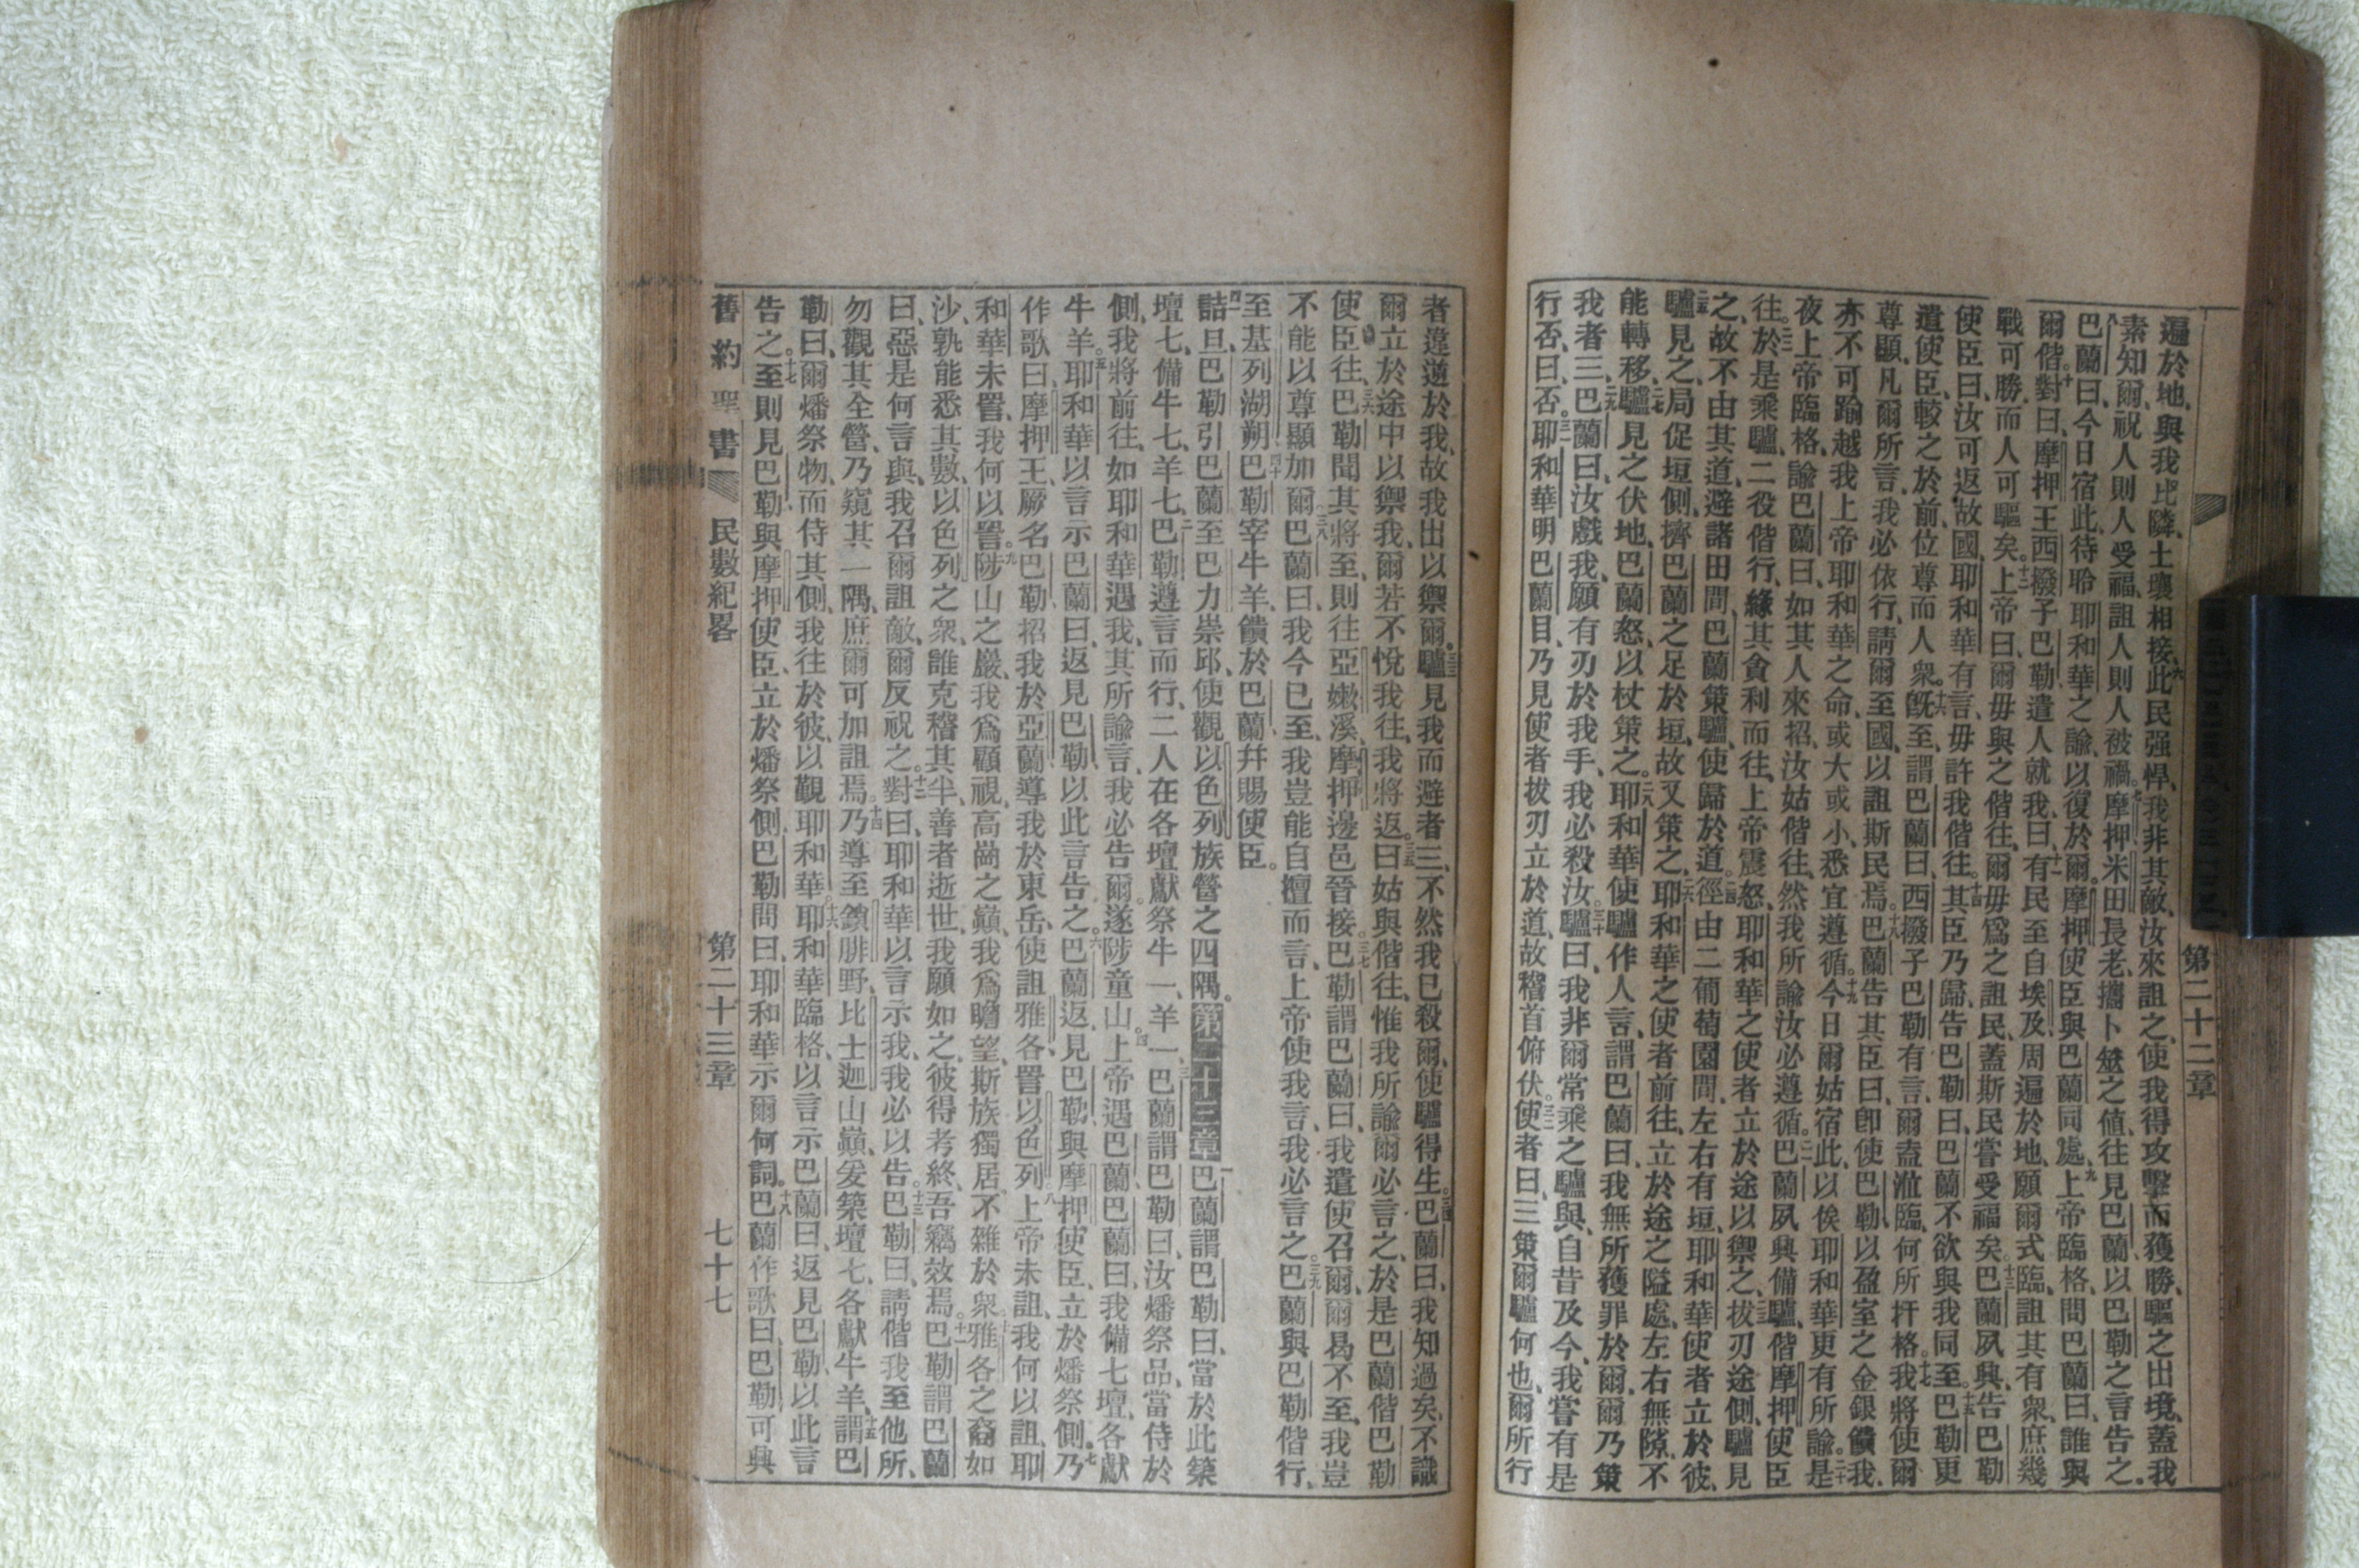 第二十二章
遍於地、與我比隣、土壤相接、六此民强悍、我非其敵、汝來詛之、使我得攻擊而獲勝、驅之出境、蓋我
素知爾祝人則人受福、詛人則人被禍。七摩押米田長老、攜卜筮之值、往見巴蘭、以巴勒之言告之。
八巴蘭曰、今日宿此、待聆耶和華之諭、以復於爾。摩押使臣與巴蘭同處、九上帝臨格、問巴蘭曰、誰與
爾偕、十對曰、摩押王西撥子巴勒、遣人就我、曰、十一有民至自埃及、周遍於地、願爾式臨、詛其有衆、庶幾
戰可勝、而人可驅矣。十二上帝曰、爾毋與之偕往、爾毋爲之詛民、蓋斯民嘗受福矣。十三巴蘭夙興、告巴勒
使臣曰、汝可返故國、耶和華有言、毋許我偕往。十四其臣乃歸、告巴勒曰、巴蘭不欲與我同至。十五巴勒更
遣使臣、較之於前、位尊而人衆。十六旣至、謂巴蘭曰、西撥子巴勒有言、爾盍涖臨、何所扞格、十七我將使爾
尊顯、凡爾所言、我必依行、請爾至國、以詛斯民焉。十八巴蘭告其臣曰、卽使巴勒以盈室之金銀饋我、
亦不可踰越我上帝耶和華之命、或大或小、悉宜遵循。十九今日爾姑宿此、以俟耶和華更有所諭。二十是
夜上帝臨格、諭巴蘭曰、如其人來招汝、姑偕往、然我所諭汝必遵循。二一巴蘭夙興備驢、偕摩押使臣
往。二二於是乘驢、二役偕行、緣其貪利而往、上帝震怒、耶和華之使者立於途以禦之、二三拔刃途側、驢見
之、故不由其道、避諸田間、巴蘭策驢、使歸於道。二四徑由二葡萄園間、左右有垣、耶和華使者立於彼、
二五驢見之、局促垣側、擠巴蘭之足於垣、故又策之、二六耶和華之使者前往、立於途之隘處、左右無隙、不
能轉移、二七驢見之伏地、巴蘭怒、以杖策之。二八耶和華使驢作人言、謂巴蘭曰、我無所獲罪於爾、爾乃策
我者三、二九巴蘭曰、汝戲我、願有刃於我手、我必殺汝。三十驢曰、我非爾常乘之驢與、自昔及今、我嘗有是
行否、曰、否。三一耶和華明巴蘭目、乃見使者拔刃立於道、故稽首俯伏。三二使者曰、三策爾驢何也、爾所行
者違逆於我、故我出以禦爾。三三驢見我而避者三、不然我已殺爾、使驢得生。三四巴蘭曰、我知過矣、不識
爾立於途中以禦我、爾若不悅我往、我將返。三五曰、姑與偕往、惟我所諭爾必言之、於是巴蘭偕巴勒
使臣往、三六巴勒聞其將至、則往亞嫩溪、摩押邊邑晉接。三七巴勒謂巴蘭曰、我遣使召爾、爾曷不至、我豈
不能以尊顯加爾、三八巴蘭曰、我今已至、我豈能自擅而言、上帝使我言、我必言之。三九巴蘭與巴勒偕行、
至基列湖朔、四十巴勒宰牛羊、饋於巴蘭、幷賜使臣。
四一詰旦、巴勒引巴蘭至巴力崇邱、使觀以色列族營之四隅。第二十三章一巴蘭謂巴勒曰、當於此築
壇七、備牛七、羊七、二巴勒遵言而行、二人在各壇獻祭牛一、羊一、三巴蘭謂巴勒曰、汝燔祭品、當侍於
側、我將前往、如耶和華遇我、其所諭言、我必告爾。遂陟童山。四上帝遇巴蘭、巴蘭曰、我備七壇、各獻
牛羊。五耶和華以言示巴蘭曰、返見巴勒、以此言告之。六巴蘭返、見巴勒與摩押使臣、立於燔祭側。七乃
作歌曰、摩押王、厥名巴勒、招我於亞蘭、導我於東岳、使詛雅各、詈以色列、八上帝未詛、我何以詛、耶
和華未詈、我何以詈。九陟山之巖、我爲顧視、高崗之巔、我爲瞻望、斯族獨居、不雜於衆、十雅各之裔如
沙、孰能悉其數、以色列之衆、誰克稽其半、善者逝世、我願如之、彼得考終、吾竊效焉。十一巴勒謂巴蘭
曰、惡是何言與、我召爾詛敵、爾反祝之。十二對曰、耶和華以言示我、我必以告。十三巴勒曰、請偕我至他所、
勿觀其全營、乃窺其一隅、庶爾可加詛焉。十四乃導至鎖腓野、比士迦山巔、爰築壇七、各獻牛羊、十五謂巴
勒曰、爾燔祭物、而侍其側、我往於彼、以觀耶和華。十六耶和華臨格、以言示巴蘭曰、返見巴勒、以此言
告之。十七至則見巴勒與摩押使臣、立於燔祭側、巴勒問曰、耶和華示爾何詞。十八巴蘭作歌曰、巴勒可興
舊約聖書 民數紀畧 第二十三章 七十七